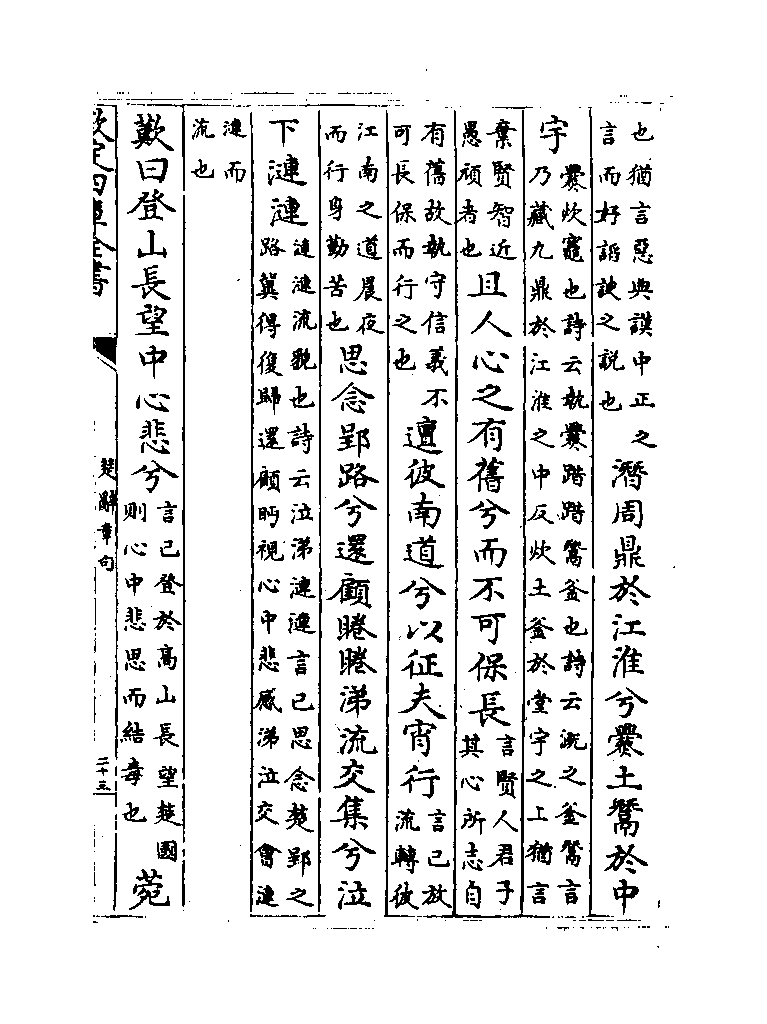 也猶言惡典謨中正之
言而好諂諛之說也
潛周鼎於江淮兮爨土鬵於中
宇
爨炊竈也詩云執爨踖踖鬵釜也詩云溉之釜鬵言
乃藏九鼎於江淮之中反炊土釜於堂宇之上猶言
棄賢智近
愚頑者也
且人心之有舊兮而不可保長
言賢人君子
其心所志自
有舊故執守信義不
可長保而行之也
邅彼南道兮以征夫宵行
言己放
流轉彼
江南之道晨夜
而行身勤苦也
思念郢路兮還顧睠睠涕流交集兮泣
下漣漣
漣漣流貌也詩云泣涕漣漣言己思念楚郢之
路冀得復歸還顧眄視心中悲感涕泣交會漣
漣而
流也
歎曰登山長望中心悲兮
言己登於高山長望楚國
則心中悲思而結毒也
菀
欽定四庫全書
楚辭章句
二十三